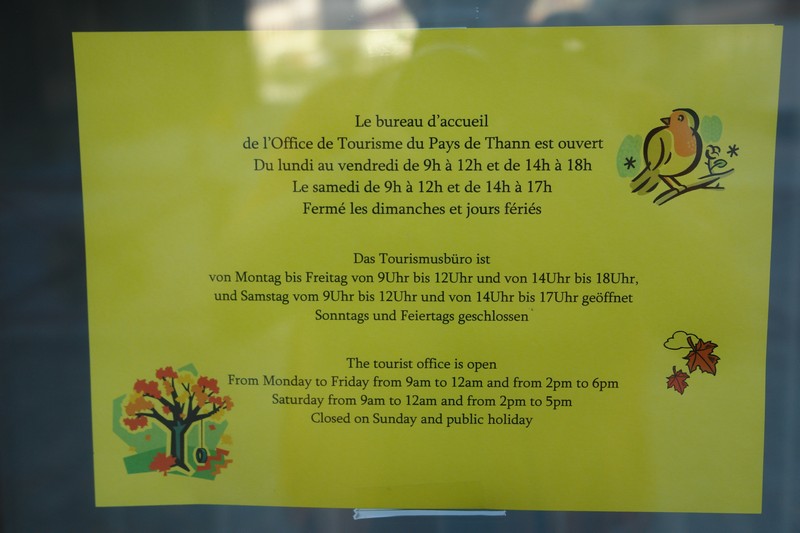 Le bureau d'accueil
de l'Office de Tourisme du Pays de Thann est ouvert
Du lundi au vendredi de 9h à 12h et de 14h à 18h
Le samedi de 9h à 12h et de 14h à 17h
Fermé les dimanches et jours fériés
Das Tourismusbüro ist
von Montag bis Freitag von 9Uhr bis 12Uhr und von 14Uhr bis 18Uhr,
und Samstag vom 9Uhr bis 12Uhr und von 14Uhr bis 17Uhr geöffnet
Sonntags und Feiertags geschlossen
The tourist office is open
From Monday to Friday from 9am to 12am and from 2pm to 6pm
Saturday from 9am to 12am and from 2pm to 5pm
Closed on Sunday and public holiday